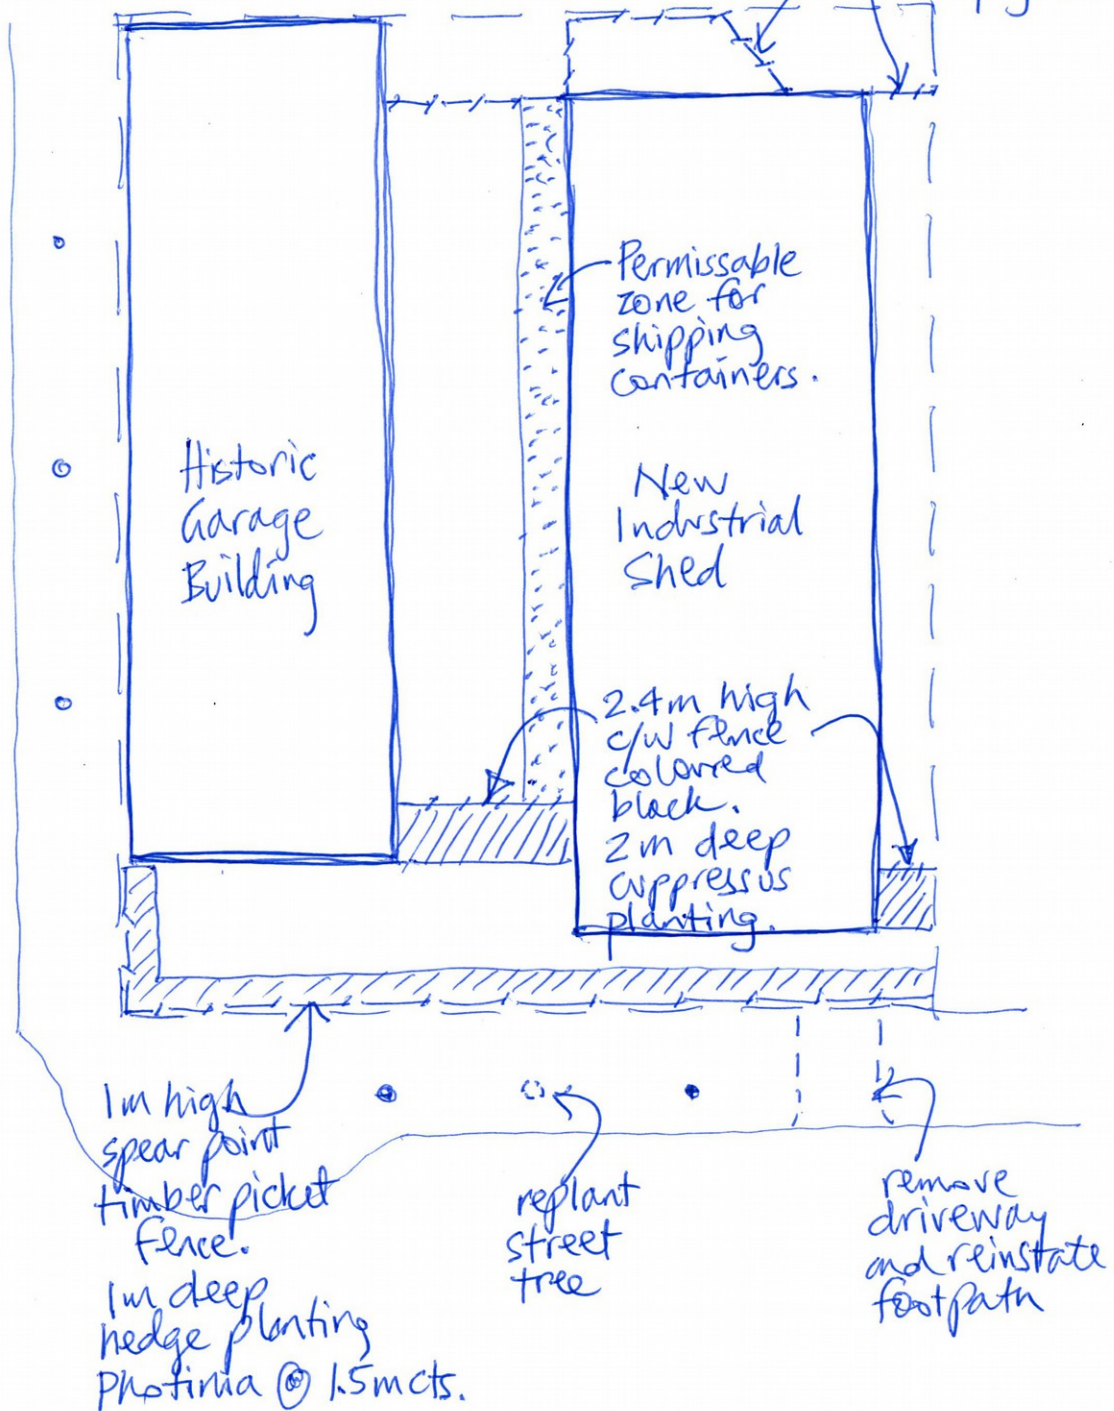 Permissable
zone for
shipping
containers.
Historic
Garage
Building
New
Industrial
Shed
2.4m high
c/w fence
coloured
black.
2m deep
cuppressus
planting.
1m high
spear point
timber picket
fence.
1m deep
hedge planting
Photinia @ 1.5mcts.
replant
street
tree
remove
driveway
and reinstate
footpath